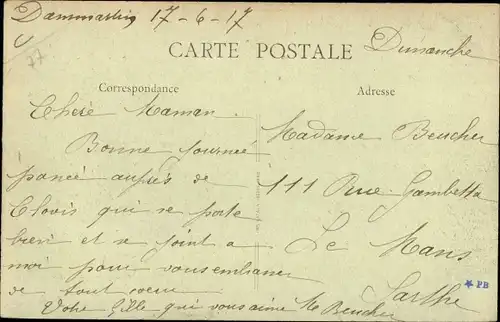 Dammartin 17-6-17
77
CARTE POSTALE
Dimanche
Correspondance
Adresse
Cheré Maman
Bonne journeé
pancé auprés de
Clovis qui se porte
bien et se joint a
moi pour vous embrasser
de tout coeur
Votre fille qui vous aime Me Beucher
Madame Beucher
111 Rue Gambetta
Le Mans
Sarthe
PB